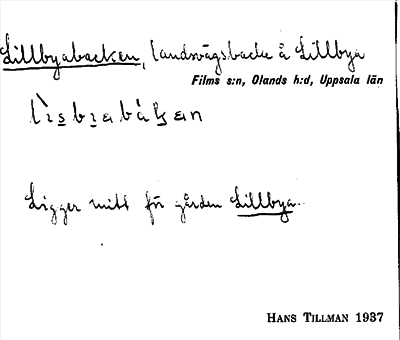 Lillbyabacken, landsvägsbacke å Lillbya
Films s:n, Olands h:d, Uppsala län
Ligger mitt för gården Lillbya.
HANS TILLMAN 1937